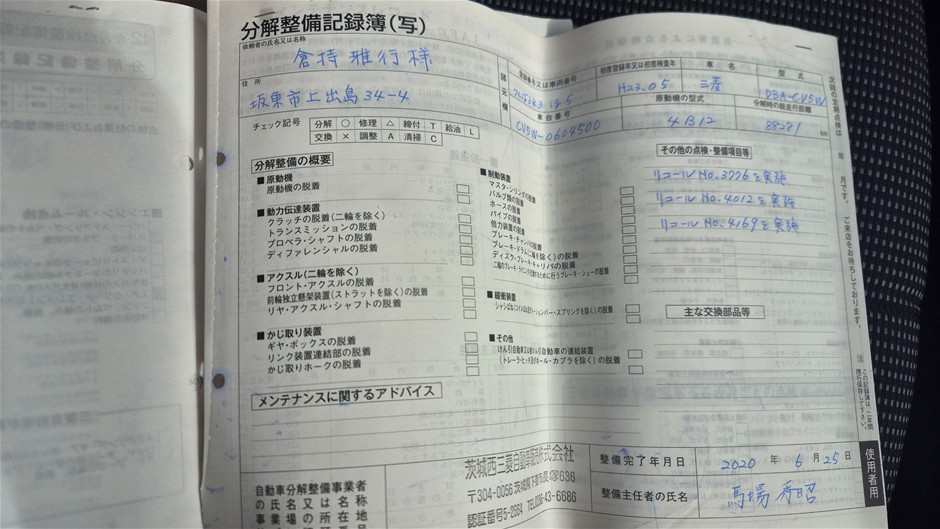 分解整備記録簿（写）
依頼者の氏名又は名称
倉持 雅行 様
住所
坂東市上出島34-4
諸元欄
登録番号又は車両番号
初度登録年又は初度検査年
H23.05
車名
三菱
型式
DBA-CV5W
車台番号
CV5W-0604500
原動機の型式
4B12
分解時の総走行距離
88281 km
チェック記号
分解 ○ 修理 △ 締付 T 給油 L
交換 × 調整 A 清掃 C
分解整備の概要
■原動機
原動機の脱着
■動力伝達装置
クラッチの脱着(二輪を除く)
トランスミッションの脱着
プロペラ・シャフトの脱着
ディファレンシャルの脱着
■アクスル(二輪を除く)
フロント・アクスルの脱着
前輪独立懸架装置(ストラットを除く)の脱着
リヤ・アクスル・シャフトの脱着
■かじ取り装置
ギヤ・ボックスの脱着
リンク装置連結部の脱着
かじ取りホークの脱着
■制動装置
マスタ・シリンダの脱着
バルブ類の脱着
ホースの脱着
パイプの脱着
倍力装置の脱着
ブレーキ・チャンバの脱着
ブレーキ・ドラム(二輪を除く)の脱着
ディスク・ブレーキ・キャリパの脱着
■緩衝装置
■その他
けん引自動車又は被けん引自動車の連結装置
その他の点検・整備項目等
リコールNo.3776を実施
リコールNo.4012を実施
リコールNo.4169を実施
主な交換部品等
メンテナンスに関するアドバイス
自動車分解整備事業者
の氏名又は名称
事業場の所在地
茨城西三菱自動車販売株式会社
整備完了年月日
2020 年 6 月 25 日
整備主任者の氏名
馬場 秀昭
使用者用
次回の定期点検は 年 月です。ご来店をお待ちしております。